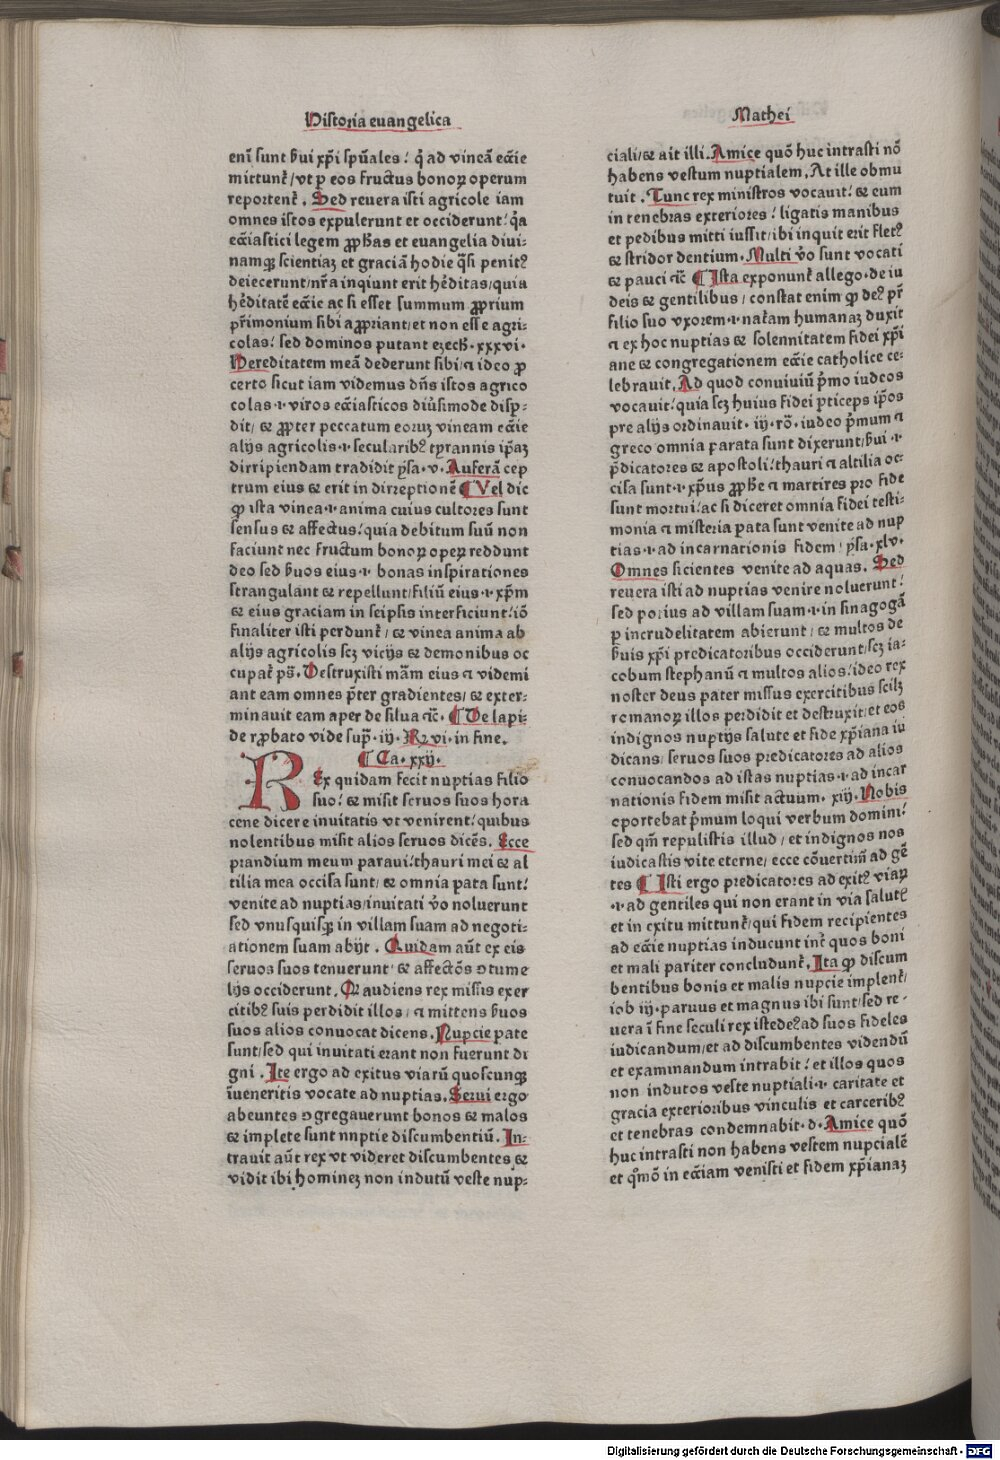 Historia euangelica
Mathei
eni̅ sunt ẜui xp̅i spu̅ales: q̇ ad vinea̅ ecc̅ie
mittunt᷑/vt ꝑ eos fructus bonoꝝ operum
reportent᷑. Sed reuera isti agricole iam
omnes istos expulerunt et occiderunt: q̇a
ecc̅iastici legem ꝓph̅as et euangelia diui-
namqꝫ scientiaꝫ et gracia̅ hodie q̇si penitꝰ
deiecerunt/nr̅a inqiunt erit he̅ditas/quia
he̅ditate̅ ecc̅ie ac si esset summum ꝓprium
pr̅imonium sibi aꝓpriant/et non esse agri-
colas: sed dominos putant ezech̅. xxxvi.
Hereditatem mea̅ dederunt sibi/⁊ ideo ꝓ
certo sicut iam videmus dn̅s istos agrico
colas .i. viros ecc̅iasticos diu̅simode disp-
dit/ & ꝓpter peccatum eoruꝫ vineam ecc̅ie
alijs agricolis .i. secularibꝰ tyrannis ip̅aꝫ
dirripiendam tradidit ysa. v. Aufera̅ cep
trum eius & erit in dirreptione̅ ¶ Vel dic
ꝙ ista vinea .i. anima cuius cultores sunt
sensus & affectus: quia debitum suu̅ non
faciunt nec fructum bonoꝝ opeꝝ reddunt
deo sed ẜuos eius .i. bonas inspirationes
strangulant & repellunt/filiu̅ eius .i. xp̅m
& eius graciam in seipsis interficiunt: io̅
finaliter isti perdunt᷑/ & vinea anima ab
alijs agricolis scꝫ vicijs & demonibus oc
cupat᷑ ps̅. Destruxisti ma̅m eius ⁊ videmi
ant eam omnes p̅ter gradientes/ & exter-
minauit eam aper de silua ⁊c̅. ¶ De lapi-
de rꝓbato vide sup̅. iij. R. vi. in fine.
¶ Ca. xxij.
REx quidam fecit nuptias filio
suo: & misit seruos suos hora
cene dicere inuitatis vt venirent: quibus
nolentibus misit alios seruos dice̅s. Ecce
prandium meum paraui: thauri mei & al
tilia mea occisa sunt/ & omnia pata sunt:
venite ad nuptias/inuitati v̊o noluerunt
sed vnusquisqꝫ in villam suam ad negoti-
ationem suam abijt. Quidam au̅t ex eis
seruos suos tenuerunt & affecto̅s ↄtume
lijs occiderunt. Q̅ audiens rex missis exer
citibꝰ suis perdidit illos/ ⁊ mittens ẜuos
suos alios conuocat dicens. Nupcie pate
sunt/sed qui inuitati erant non fuerunt di
gni. Ite ergo ad exitus viaru̅ quoscunqꝫ
i̅ueneritis vocate ad nuptias. Serui ergo
abeuntes ↄgregauerunt bonos & malos
& implete sunt nnptie discumbentiu̅. In-
trauit au̅t rex vt videret discumbentes &
vidit ibi homineꝫ non indutu̅ veste nup-
ciali/& ait illi. Amice quo̅ huc intrasti no̅
habens vestum nuptialem. At ille obmu
tuit. Tunc rex ministros vocauit: & eum
in tenebras exteriores: ligatis manibus
et pedibus mitti iussit/ibi inquit erit fletꝰ
& stridor dentium. Multi v̊o sunt vocati
& pauci ⁊c̅ ¶ Ista exponunt᷑ allego. de iu
deis & gentilibus/ constat enim ꝙ deꝰ pr̅
filio suo vxorem .i. nat᷑am humanaꝫ duxit
⁊ ex hoc nuptias & solennitatem fidei xp̅i
ane & congregationem ecc̅ie catholice ce-
lebrauit. Ad quod conuiuiu̅ p̅mo iudeos
vocauit: quia scꝫ huius fidei ꝑticeps ip̅os
pre alijs ordinauit. iij. ro̅. iudeo p̅mum ⁊
greco omnia parata sunt dixerunt/ẜui .i.
p̅dicatores & apostoli: thauri ⁊ altilia oc-
cisa sunt .i. xp̅us ꝓph̅e ⁊ martires pro fide
sunt mortui: ac si diceret omnia fidei testi-
monia ⁊ misteria pata sunt venite ad nup
tias .i. ad incarnationis fidem: ysa. xlv.
Omnes sicientes venite ad aquas. Sed
reuera isti ad nuptias venire noluerunt:
sed potius ad villam suam .i. in sinagoga̅
ꝑ incrudelitatem abierunt/ & multos de
ẜuis xp̅i predicatoribus occiderunt/scꝫ ia-
cobum stephanu̅ ⁊ multos alios: ideo rex
noster deus pater missus exercitibus scilꝫ
romanoꝝ illos perdidit et destruxit/et eos
indignos nuptijs salute et fide xp̅iana iu
dicans/ seruos suos predicatores ad alios
conuocandos ad istas nuptias .i. ad incar
nationis fidem misit actuum. xiij. Nobis
oportebat p̅mum loqui verbum domini:
sed qm̅ repulistis illud/ et indignos nos
iudicastis vite eterne/ ecce co̅uertim̅ ad ge̅
tes ¶ Isti ergo predicatores ad exitꝰ viaꝝ
.i. ad gentiles qui non erant in via salutꝰ
et in exitu mittunt᷑/qui fidem recipientes
ad ecc̅ie nuptias inducunt int᷑ quos boni
et mali pariter concludunt᷑. Ita ꝙ discum
bentibus bonis et malis nupcie implent᷑/
iob iij. paruus et magnus ibi sunt/sed re-
uera i̅ fine seculi rex iste deꝰ ad suos fideles
iudicandum/et ad discumbentes videndu̅
et examinandum intrabit: et illos quos
non indutos veste nuptiali .i. caritate et
gracia exterioribus vinculis et carceribꝰ
et tenebras condemnabit. d. Amice quo̅
huc intrasti non habens vestem nupciale̅
et q̇mo̅ in ecc̅iam venisti et fidem xp̅ianaꝫ
Digitalisierung gefördert durch die Deutsche Forschungsgemeinschaft - DFG